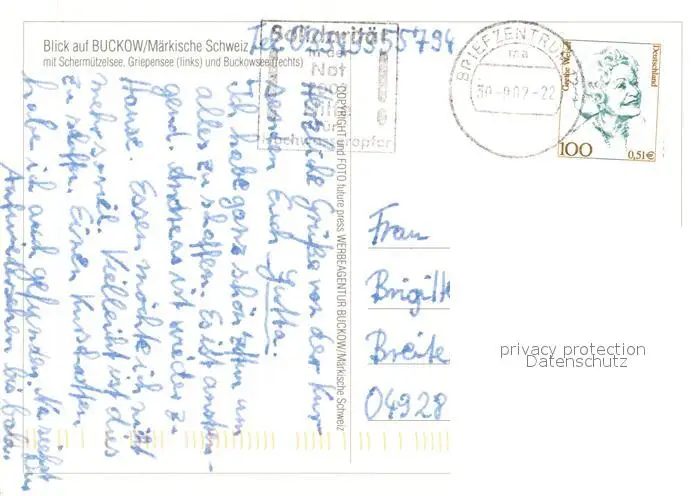 Blick auf BUCKOW/Märkische Schweiz
mit Schermützelsee, Griepensee (links) und Buckowsee (rechts)
Solidarität
in der
Not
für
Hochwasseropfer
BRIEFZENTRUM
30.-9.02-22
Deutschland
100
0,51€
Herzliche Grüße von der Kur
senden Euch Jutta.
Ich habe ganz schön zu tun um
alles zu schaffen. Es ist anstren-
gend. Andreas ist wieder zu
Hause. Essen möchte ich nicht
mehr soviel. Vielleicht ist das
zu schaffen. Einen Kurschatten
habe ich auch gefunden. Na siehst
Aufwiedersehen bis bald.
COPYRIGHT und FOTO future press WERBEAGENTUR BUCKOW/Märkische Schweiz
Frau
Brigitte
Breite
04928
privacy protection
Datenschutz